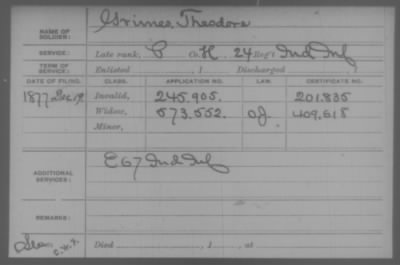 NAME OF SOLDIER: Grimes, Theodore
SERVICE: Late rank, C Co. H, 24 Reg't Ind Inf
TERM OF SERVICE: Enlisted , 1 Discharged , 1
DATE OF FILING. CLASS. APPLICATION NO. LAW. CERTIFICATE NO.
1877 Dec 19 Invalid, 245.905. 201.835
Widow, 573.552. O.J. 409.618
Minor,
ADDITIONAL SERVICES: E 67 Ind Inf
REMARKS:
C.W.F.
Died , 1 , at